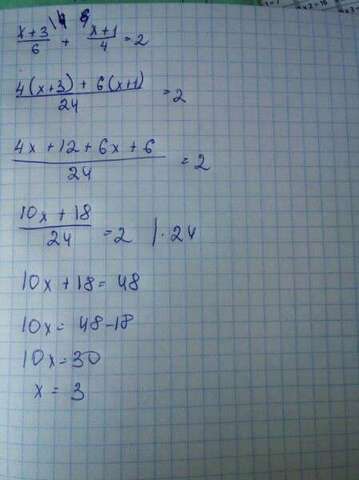 x+3/6 \4 + 6 x+1/4 = 2
4(x+3) + 6(x+1)/24 = 2
4x + 12 + 6x + 6/24 = 2
10x + 18/24 = 2 | · 24
10x + 18 = 48
10x = 48 - 18
10x = 30
x = 3